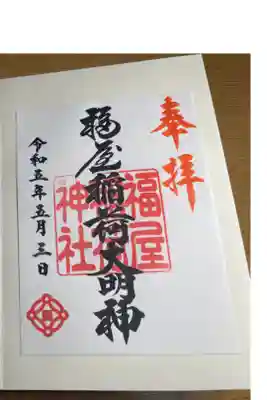 奉拝
福屋稲荷大明神
福屋
神社
令和五年五月三日